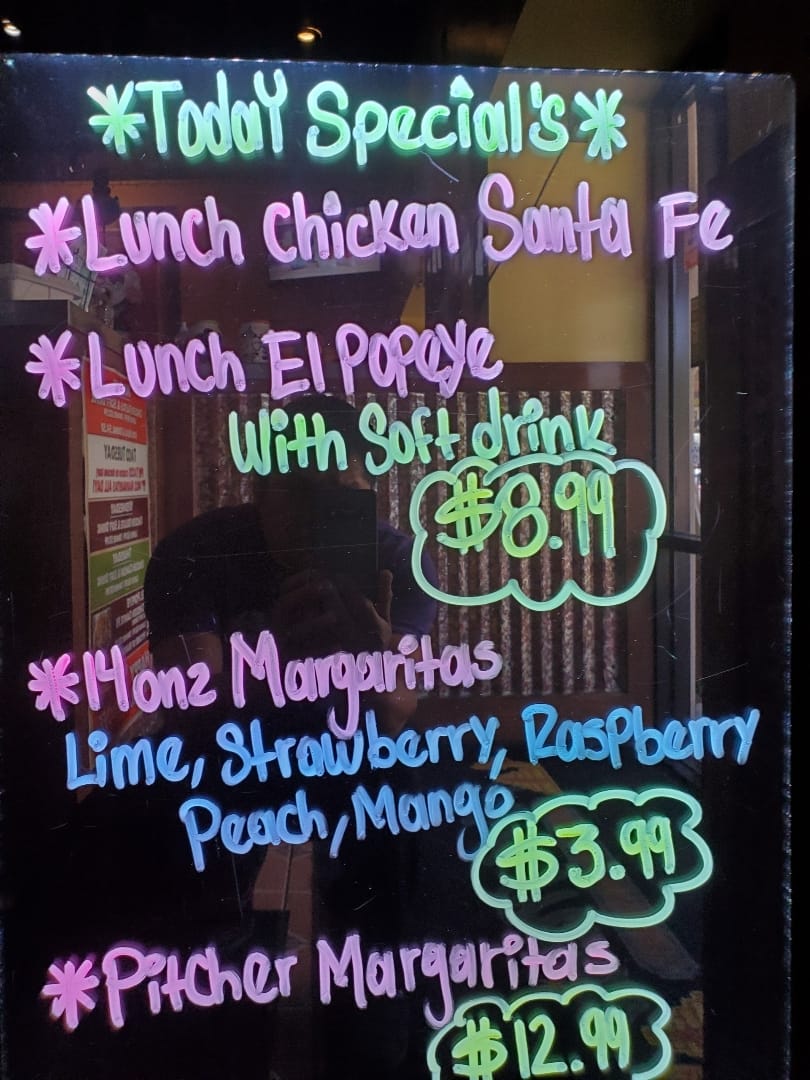 *Today Special's*
*Lunch Chicken Santa Fe
*Lunch El Popeye
With Soft drink
$8.99
*14onz Margaritas
Lime, Strawberry, Raspberry
Peach, Mango
$3.99
*Pitcher Margaritas
$12.99